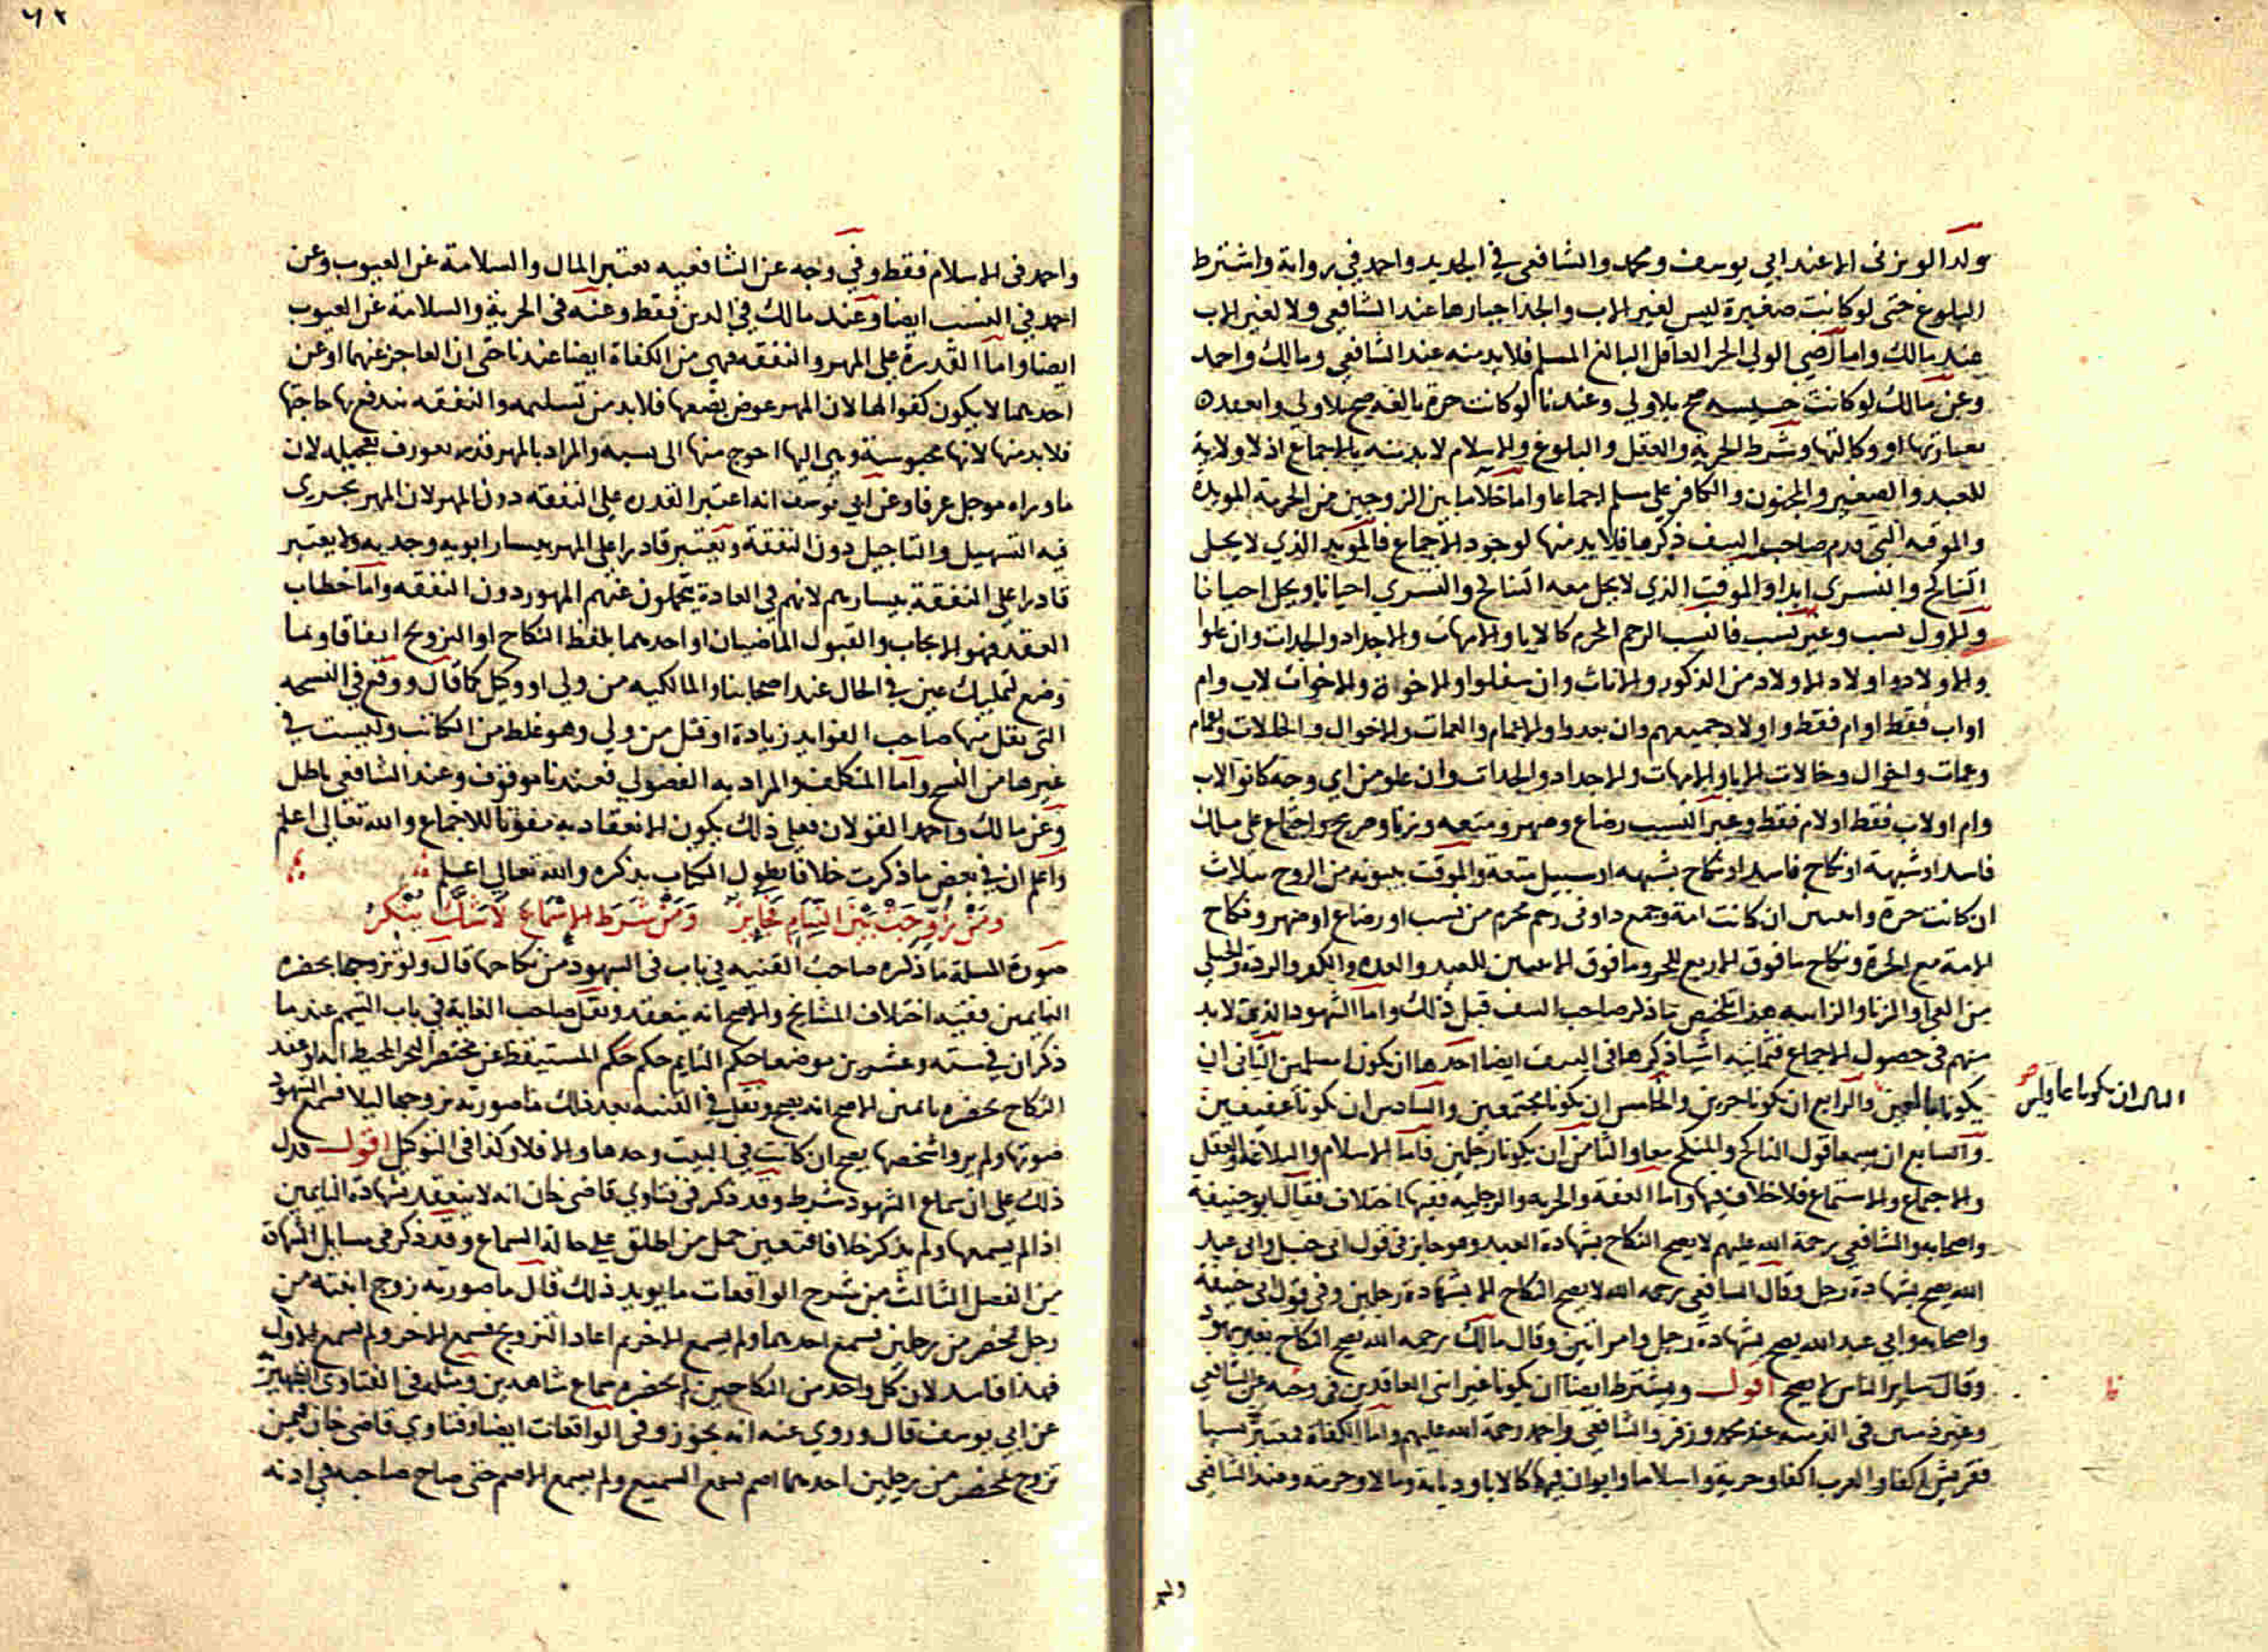 ولد الويزني الا عند ابي يوسف ومحمد والشافعي في الجديد واحمد في رواية واشترط
البلوغ حتى لو كانت صغيرة ليس لغير الاب والجد اجبارها عند الشافعي ولا لغير الاب
عند مالك واما رضي الولي الحر العاقل البالغ المسلم فلا بد منه عند الشافعي ومالك واحمد
وعن مالك لو كانت خسيسه صح بلا ولي وعندنا لو كانت حرة بالغه صح بلا ولي وانعقده
بعبارتها او وكالتها وشرط الحرية والعقل والبلوغ والاسلام لا بد منه بالاجماع اذ لا ولاية
للعبد والصغير والمجنون والكافر على مسلم اجماعا واما خلا ما بين الزوجين من الحرمة المويدة
والموقته التي قدم صاحب النتف ذكرها فلا بد منها لوجود الاجماع فالموبد الذي لا يحل
التناكح والتسري ابدا والموقت الذي لا يحل معه التناكح والتسري احيانا ويحل احيانا
والاول نسب وغير نسب فالنسب الرحم المحرم كالابا والامهات والاجداد والجدات وان علوا
والاولاد واولاد الاولاد من الذكور والاناث وان سفلوا والاخوة والاخوات لاب وام
او اب فقط او ام فقط واولاد جميعهم وان بعدوا والاعمام والعمات والاخوال والخالات واعمام
وعمات واخوال وخالات الابا والامهات والاجداد والجدات وان علو من اي وجه كانوا لاب
وام او لاب فقط او لام فقط وغير النسب رضاع وصهر ومتعه وزنا وصريح واجماع على ملك
فاسد او شبهة او نكاح فاسد او نكاح بشبهه او سبيل متعة والموقت ببينونه من الزوج بثلاث
ان كانت حرة واثنين ان كانت امة وجمع ذاوتي رحم محرم من نسب او رضاع او صهر ونكاح
الامة مع الحرة ونكاح ما فوق الاربع للحر وما فوق الاثنين للعبد والعده والكفر والردة والحبلى
من الغير والزنا والزانيه هذا تلخيص ما ذكر صاحب النتف قبل ذلك واما الشهود الذي لا بد
منهم في حصول الاجماع فثمانيه اشيا ذكرها في النتف ايضا احدها ان يكونا مسلمين الثاني ان
يكونا بالغين والرابع ان يكونا حرين والخامس ان يكونا مجتمعين والسادس ان يكونا عفيفين
الثالث ان يكونا عاقلين صح
والسابع ان يسمعا قول الناكح والمنكح معا والثامن ان يكونا رجلين فاما الاسلام والبلاغة والعقل
والاجماع والاستماع فلا خلاف فيها واما العفة والحرية والرجليه ففيها اختلاف فقال ابو حنيفة
واصحابه والشافعي رحمة الله عليهم لا يصح النكاح بشهادة العبد وهو جايز في قول ابن حنبل وابي عبد
الله يصح بشهادة رجل وقال الشافعي رحمه الله لا يصح النكاح الا بشهادة رجلين وفي قول ابي حنيفة
واصحابه وابي عبد الله يصح بشهادة رجل وامراتين وقال مالك رحمه الله يصح النكاح بغير شهود
وقال ساير الناس لا يصح اقول ويشترط ايضا ان يكونا غير ابني العاقدين في وجه عن الشافعي
وغير فمسن في الذميه عند محمد وزفر والشافعي واحمد رحمة الله عليهم واما الكفاة فتعتبر نسبا
فقريش اكفا والعرب اكفا وحرية واسلاما وابوان فيهما كالابا وديانة ومالا وحرمة وعند الشافعي
واحمد في الاسلام فقط وفي وجه عن الشافعيه تعتبر المال والسلامة عن العيوب وعن
احمد في النسب ايضا وعند مالك في الدين فقط وعنه في الحرية والسلامة عن العيوب
ايضا واما القدرة على المهر والنفقه فهي من الكفاة ايضا عندنا حتى ان العاجز عنهما او عن
احديهما لا يكون كفوا لها لان المهر عوض بضعها فلا بد من تسليمه والنفقه تندفع بها حاجتها
فلا بد منها لانها محبوسة وهي اليها احوج منها الى نسبه والمراد بالمهر قدر تعورف تعجيله لان
ما وراه موجل عرفا وعن ابي يوسف انه اعتبر القدره على النفقه دون المهر لان المهر يجري
فيه التسهيل والتاجيل دون النفقة ويعتبر قادرا على المهر بيسار ابويه وجديه ولا يعتبر
قادرا على النفقة بيسارهم لانهم في العادة يتحملون عنهم المهور دون النفقه واما خطاب
العقد فهو الايجاب والقبول الماضيان او احدهما بلفظ النكاح او التزويج اتفاقا وبما
وضع لتمليك عين في الحال عند اصحابنا والمالكيه من ولي او وكيل كما قال ووقع في النسخه
التي نقل منها صاحب الفوايد زيادة او قتل من ولي وهو غلط من الكاتب وليست في
غيرها من النسخ واما المتكلف والمراد به الفضولي فعندنا موقوف وعند الشافعي باطل
وعن مالك واحمد القولان فعلى ذلك يكون الانعقاد به مفوتا للاجماع والله تعالى اعلم
واعلم ان في بعض ما ذكرت خلافا يطول الكتاب بذكره والله تعالى اعلم
ومن زوجت بين النيام فجايز ومن شرط الاسماع لا شك ينكر
صورة المسلة ما ذكره صاحب القنيه في باب في الشهود من نكاحها قال ولو تزوجها بحضره
النايمين ففيه اختلاف المشايخ والاصح انه ينعقد ونقل صاحب الغاية في باب التيمم عند ما
ذكر ان في سته وعشرين موضعا حكم النايم حكم المستيقظ عن مختصر البحر المحيط انه لو عقد
النكاح بحضره نايمين الاصح انه يصح ونقل في القنيه بعد ذلك ما صورته تزوجها ليلا فسمع الشهود
صوتها ولم يروا شخصها يصح ان كانت في البيت وحدها والا فلا وكذا في التوكيل اقول فدل
ذلك على ان سماع الشهود شرط وقد ذكر في فتاوي قاضي خان انه لا ينعقد بشهادة النايمين
اذا لم يسمعها ولم يذكر خلافا فتعين حمل من اطلق على حالة السماع وقد ذكر في مسايل الشهادة
من الفصل الثالث من شرح الواقعات ما يويد ذلك قال ما صورته زوج ابنته من
رجل بمحضر من رجلين فسمع احدهما ولم يسمع الاخر ثم اعاد التزويج فسمع الاخر ولم يسمع الاول
فهذا فاسد لان كل واحد من النكاحين لم يحضره سماع شاهدين ومثله في الفتاوى الظهيريه
عن ابي يوسف قال وروي عنه انه يجوز وفي الواقعات ايضا وفتاوي قاضي خان فيمن
تزوج بمحضر من رجلين احدهما اصم فسمع السميع ولم يسمع الاصم حتى صاح صاحبه في اذنه